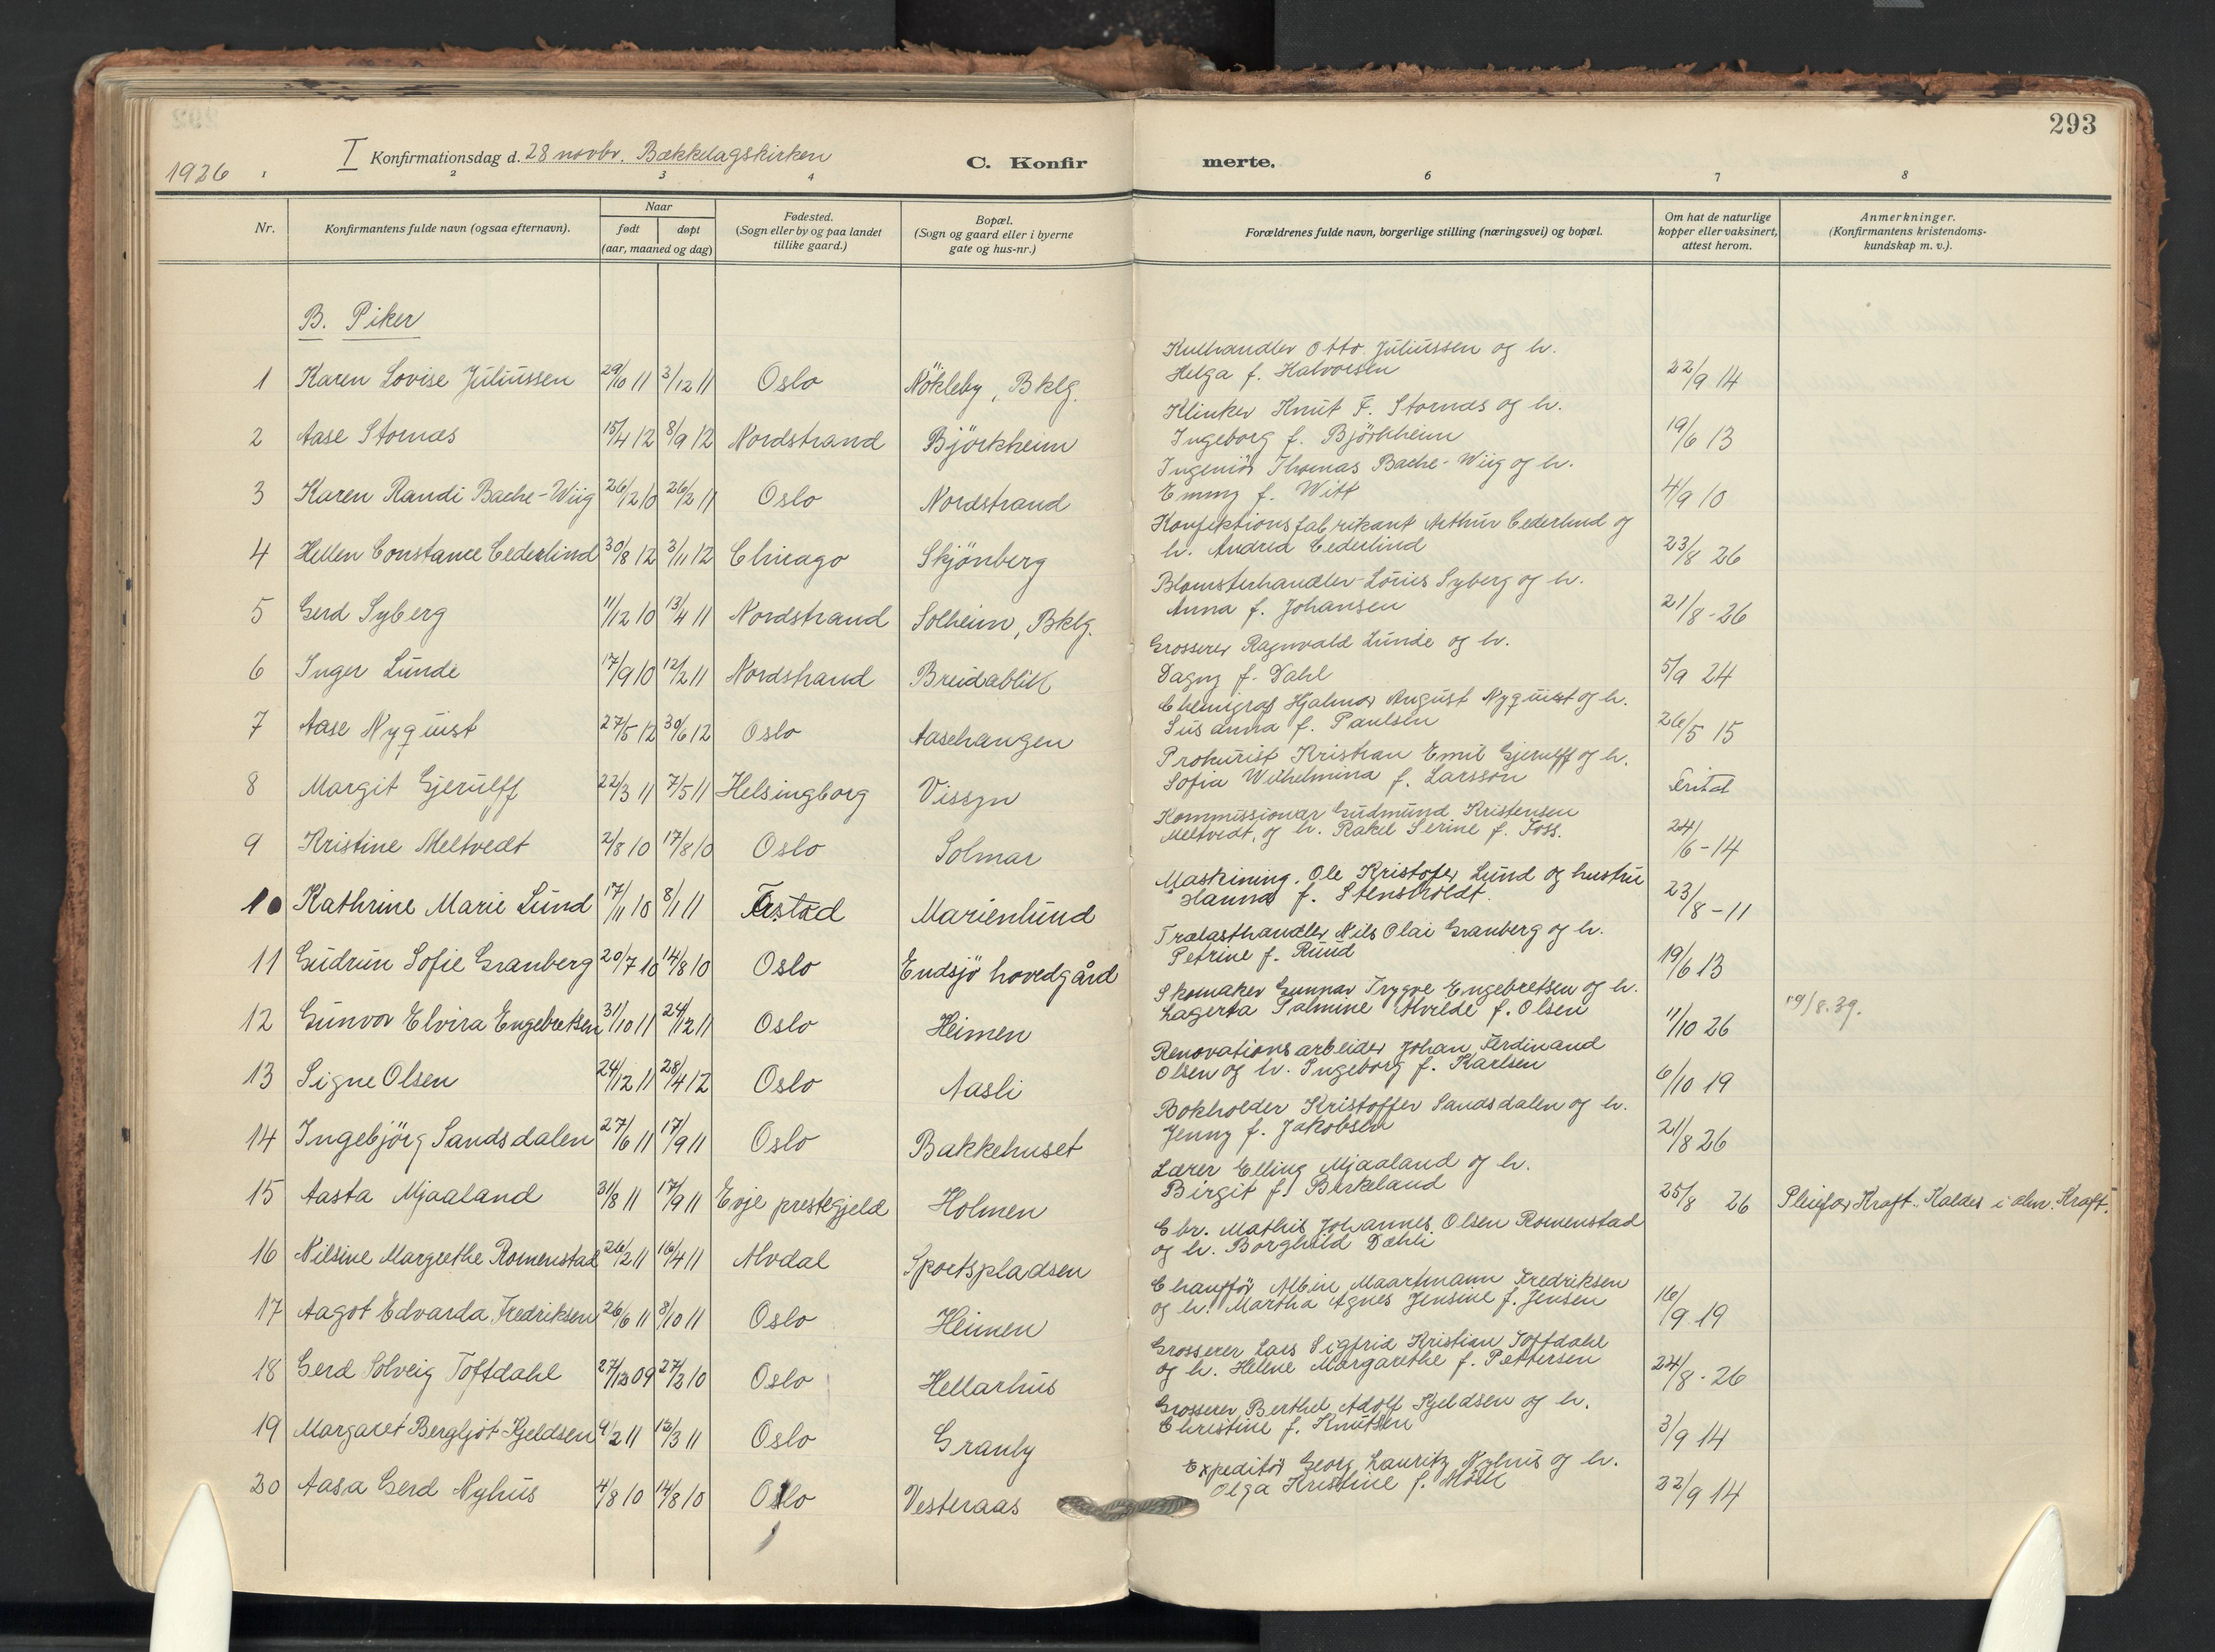 293
1926
I Konfirmationsdag d. 28 novbr. Bækkelagskirken
C. Konfirmerte.
1 2 3 4 6 7 8
Nr.
Konfirmantens fulde navn (ogsaa efternavn).
Naar
født
døpt
(aar, maaned og dag)
Fødested.
(Sogn eller by og paa landet
tillike gaard.)
Bopæl.
(Sogn og gaard eller i byerne
gate og hus-nr.)
Forældrenes fulde navn, borgerlige stilling (næringsvei) og bopæl.
Om hat de naturlige
kopper eller vaksinert,
attest herom.
Anmerkninger.
(Konfirmantens kristendoms-
kundskap m. v.).
B. Piker
1 Karen Lovise Juliussen 29/10 11 3/12 11 Oslo Nökleby, Bklg. Kulhandler Otto Juliussen og h.
Helga f. Halvorsen 22/9 14
2 Aase Stornæs 15/4 12 8/9 12 Nordstrand Björkheim Klinker Knut F. Stornæs og h.
Ingeborg f. Björkheim 19/6 13
3 Karen Randi Bache-Wiig 26/12 10 26/2 11 Oslo Nordstrand Ingeniör Thomas Bache-Wiig og h.
Emmy f. Witt 4/9 10
4 Hellen Constance Cederlind 30/8 12 3/11 12 Chicago Skjönberg Konfektionsfabrikant Arthur Cederlund og
h. Andrea Cederlind 23/8 26
5 Gerd Syberg 11/12 10 13/4 11 Nordstrand Solheim, Bklg. Blomsterhandler Syberg og h.
Anna f. Johansen 21/8-26
6 Inger Lunde 17/9 10 12/2 11 Nordstrand Breidablik Grosserer Ragnvald Lunde og h.
Dagny f. Dahl 5/9 24
7 Aase Nyquist 27/5 12 30/6 12 Oslo Aasehaugen Chemigraf Hjalmar August Nyquist og h.
Susanna f. Paulsen 26/5 15
8 Margit Gjerulff 22/3 11 7/5 11 Helsingborg Vissyn Prokurist Kristian Emil Gjerulff og h.
Sofia Wilhelmina f. Larsson
9 Kristine Meltvedt 2/8 10 17/8 10 Oslo Solmar Kommissionær Gudmund Kristensen
Meltvedt, og h. Rakel Serine f. Foss. 24/6-14
10 Kathrine Marie Lund 17/11 10 8/1 11 Marienlund Maskining. Ole Kristofer Lund og hustru
Hanna f. Stensholdt. 23/8-11
11 Gudrun Sofie Granberg 20/7 10 14/8 10 Oslo Endsjö hovedgård Trælasthandler Nils Olai Granberg og h.
Petrine f. Ruud 19/6 13
12 Gunvor Elvira Engebretsen 31/10 11 24/12 11 Oslo Heimen Skomaker Gunnar Trygve Engebretsen og h.
Lagerta Palmine Alvilde f. Olsen 11/10 26 19/8.39.
13 Signe Olsen 24/12 11 28/4 12 Oslo Aasli Renovationsarbeider Johan Ferdinand
Olsen og h. Ingeborg f. Karlsen 6/10 19
14 Ingebjörg Sandsdalen 27/6 11 17/9 11 Oslo Bakkehuset Bokholder Kristoffer Sandsdalen og h.
Jenny f. Jakobsen 21/8 26
15 Aasta Mjaaland 31/8 11 17/9 11 Evje prestegjeld Holmen Lærer Elling Mjaaland og h.
Birgit f. Birkeland 25/8 26
16 Nilsine Margrethe Romenstad 26/2 11 16/4 11 Alvdal Sportspladsen Ebr. Mathis Johannes Olsen Romenstad
og h. Borghild Dæhli
17 Aagot Edvarda Fredriksen 26/6 11 8/10 11 Oslo Heimen Chauffør Albin Maartmann Fredriksen
og h. Martha Agnes Jensine f. Jensen 16/9 19
18 Gerd Solveig Toftdahl 27/12 09 27/3 10 Oslo Hellarhus Grosserer Lars Sigfrid Kristian Toftdahl
og h. Helene Margarethe f. Pettersen 24/8-26
19 Margaret Bergljot Kjeldsen 9/2 11 12/3 11 Oslo Granly Grosserer Berthel Adolf Kjeldsen og h.
Christine f. Knutsen 3/9 14
20 Aasa Gerd Nyhus 4/8 10 14/8 10 Oslo Vesteraas Expeditör Georg Lauritz Nyhus og h.
Olga Kristine f. 22/9 14